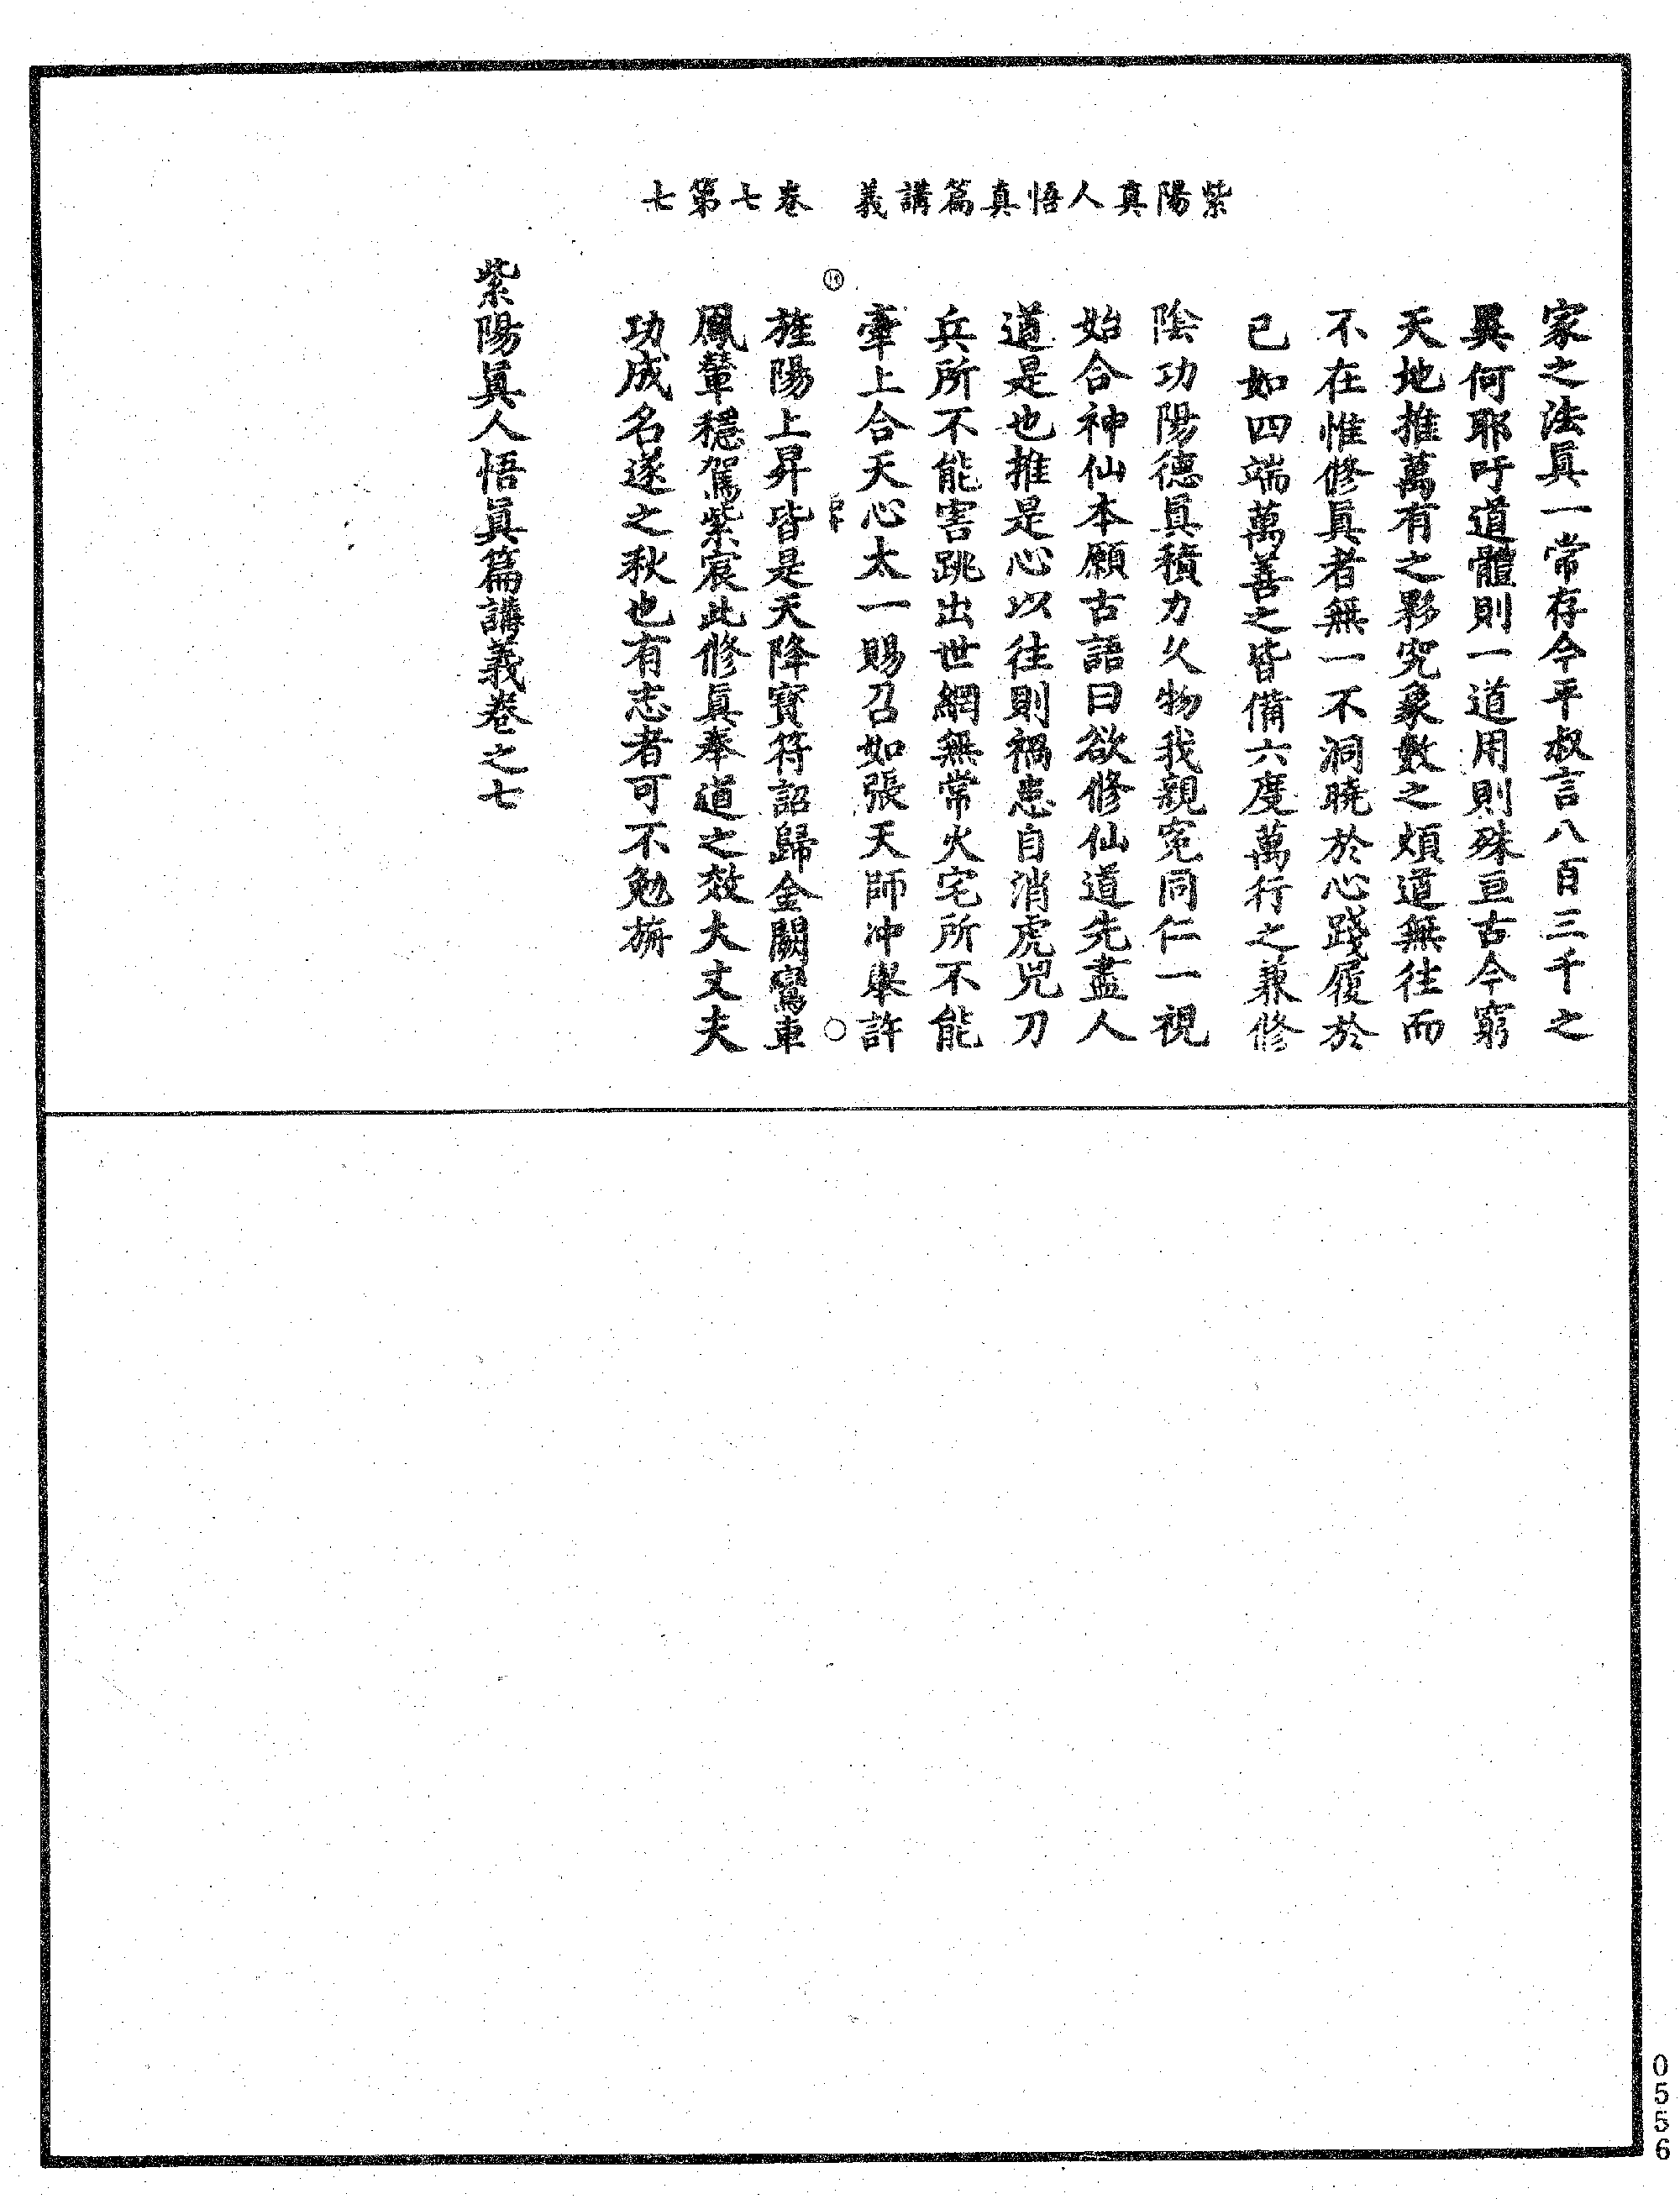 紫陽真人悟真篇講義 卷七第七
家之法眞一常存今平叔言八百三千之
異何耶吁道體則一道用則殊亘古今窮
天地推萬有之夥究象數之煩道無往而
不在惟修眞者無一不洞曉於心踐履於
已如四端萬善之皆備六度萬行之兼修
陰功陽德眞積力久物我親寃同仁一視
始合神仙本願古語曰欲修仙道先盡人
道是也推是心以往則禍患自消虎兕刀
兵所不能害跳出世網無常火宅所不能
牽上合天心太一賜召如張天師冲舉許
旌陽上昇皆是天降寶符詔歸金闕鸞車
鳳輦穩駕紫宸此修眞奉道之效大丈夫
功成名遂之秋也有志者可不勉旃
紫陽眞人悟眞篇講義卷之七
0556